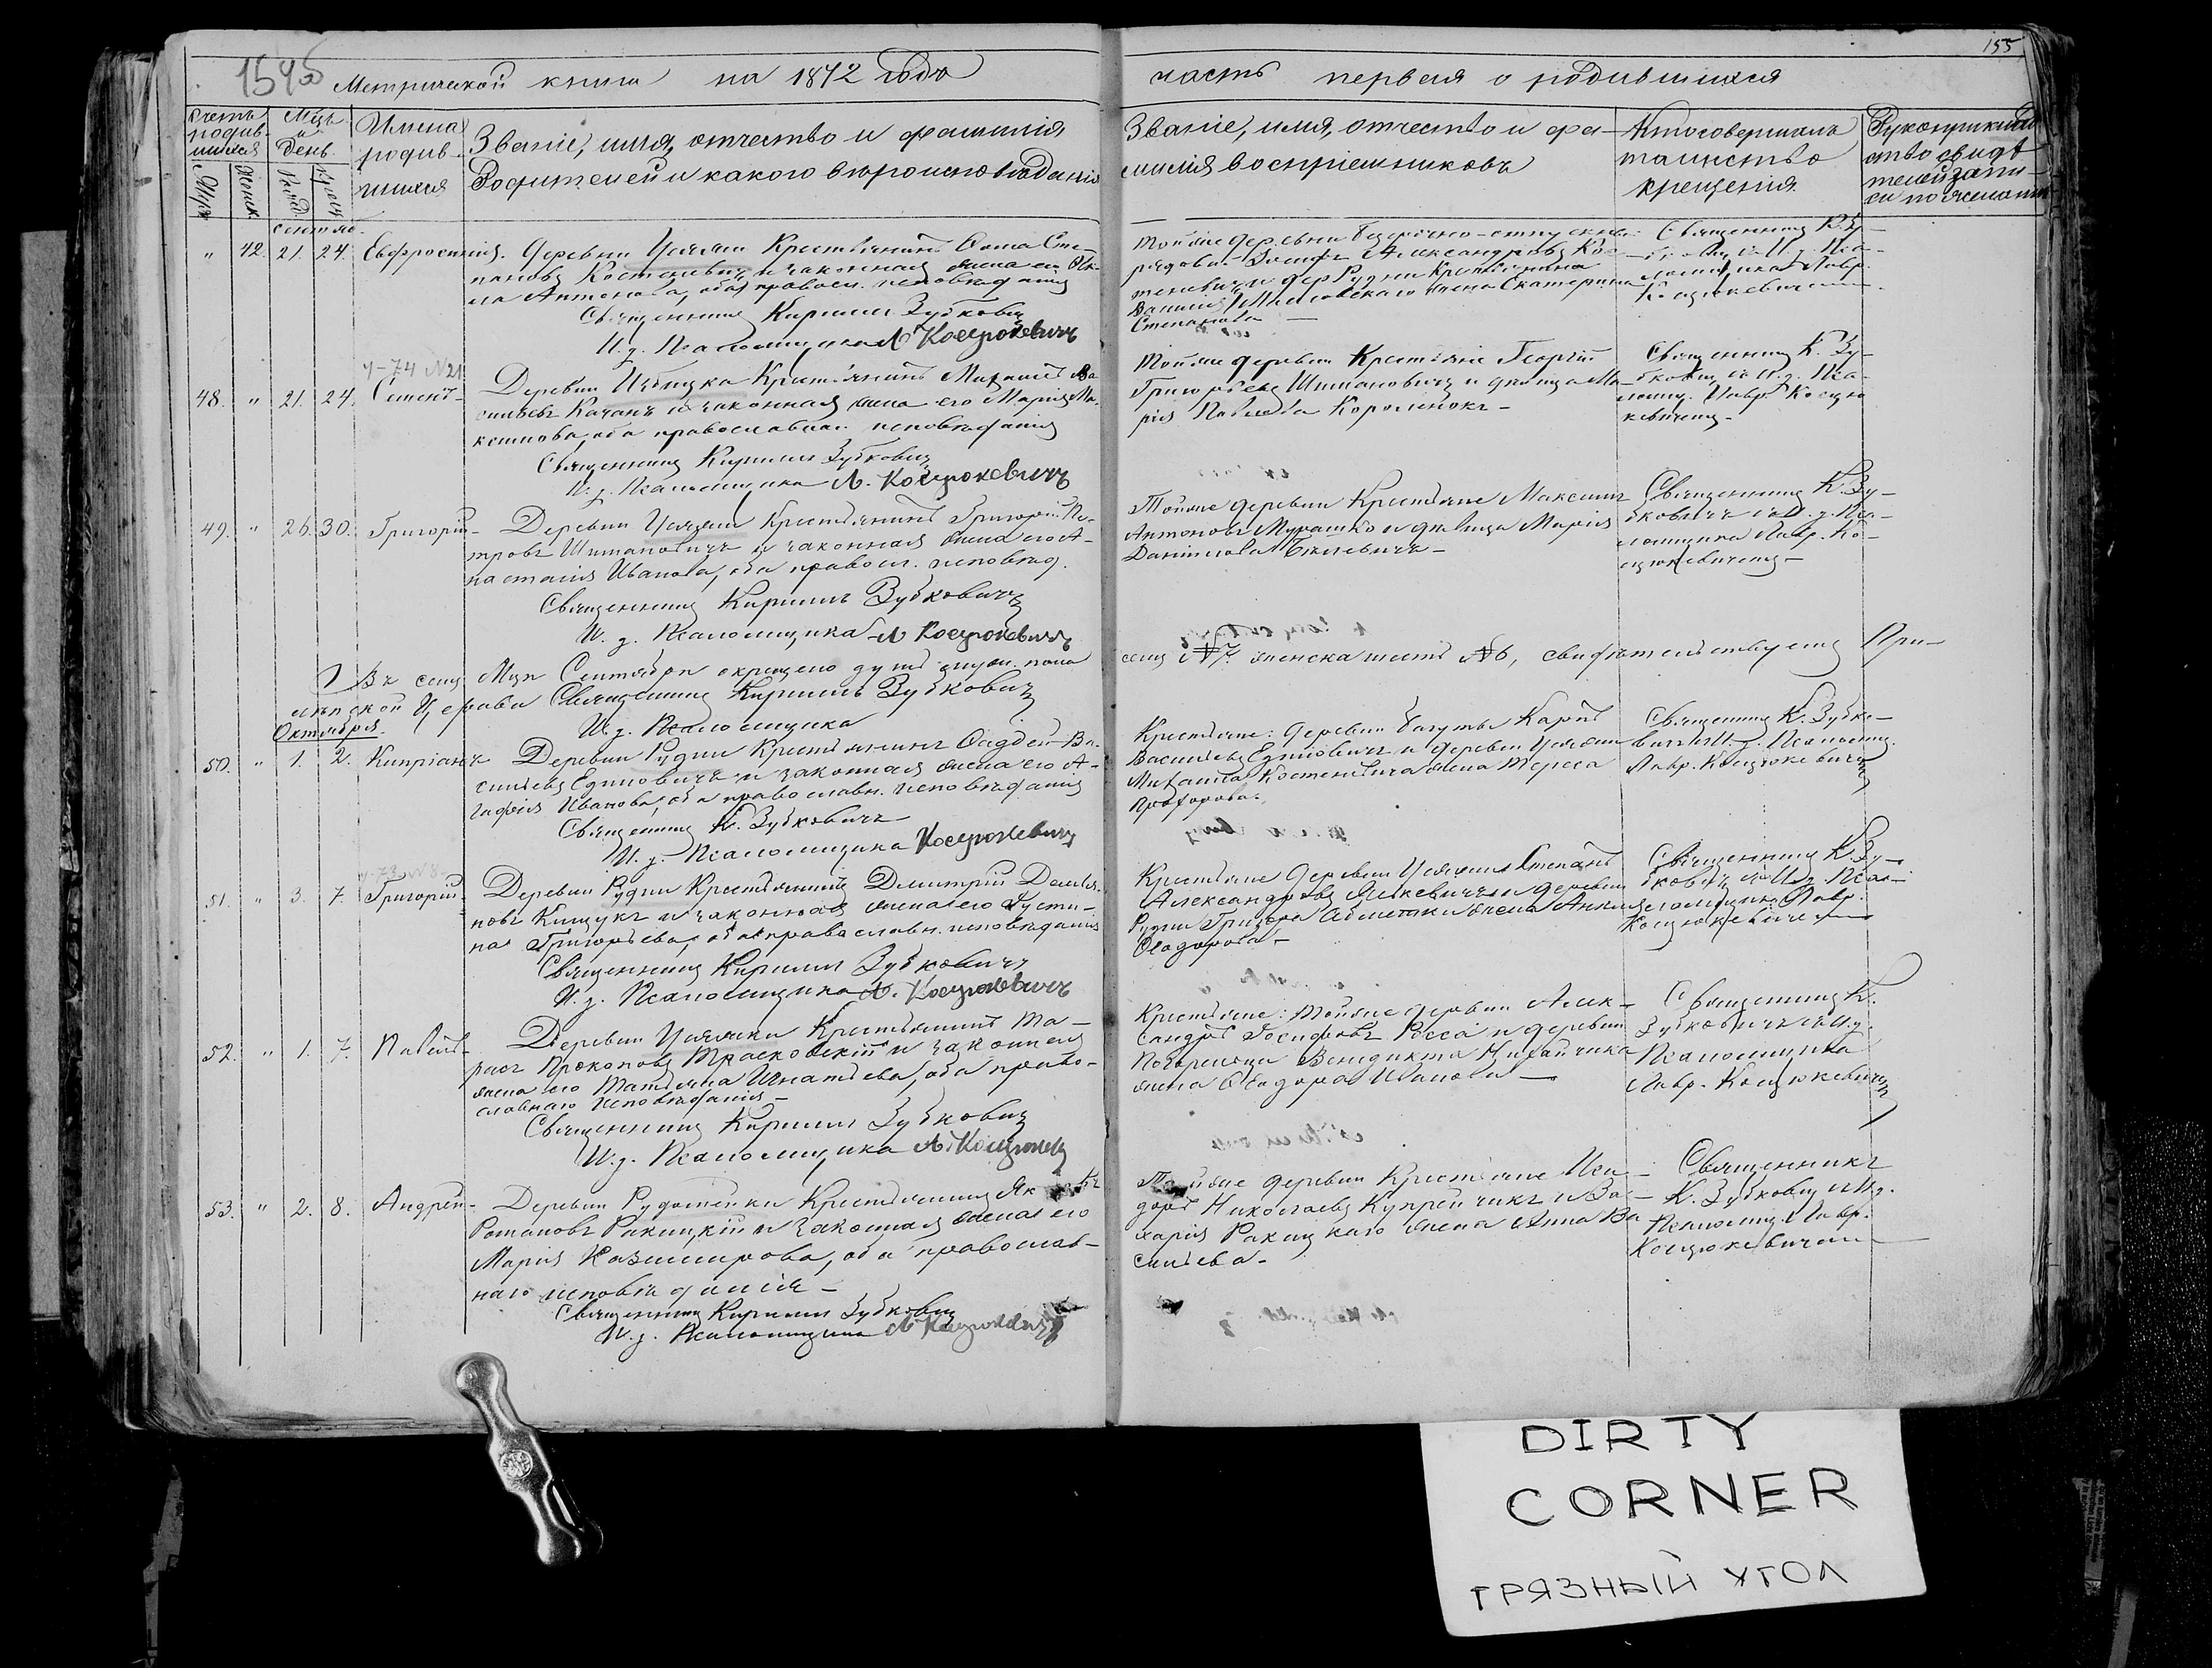 155
154об
Метрической книги на 1872 годъ
часть первая о родившихся
Счетъ родив-
шихся
Мцъ
и
день
Имена
родив-
шихся
Званіе, имя, отчество и фамилія
Родителей и какого вѣроисповѣданія
Званіе, имя, отчество и фа-
милія воспріемниковъ
Кто совершалъ
таинство
крещенія
Рукоприклад
ство свидѣ
телей запи-
си по желанію
Муж
Женск
Рожд
Крещ
" 42. 21. 24. Евфросинія. Деревни Крестьянинъ Ѳома Сте-
пановъ Костеневичъ и законная жена его
Антонова, оба правосл. исповѣданія
Священникъ Кириллъ Зубковичъ
И. д. Псаломщика Л Косцюкевичъ
Тойже деревни безсрочно-отпускн.
рядовый Александровъ Кос-
теневичъ и дер Рудни Крестьянина
жена Екатерина
Степанова —
Священникъ К. Зу-
бковичъ съ И. д. Пса-
ломщика Лавр.
Косцюкевичемъ.
ч-74 №21
48. " 21. 24. Семенъ- Деревни Крестьянинъ Михаилъ Ва
сильевъ Качанъ и законная жена его Марія Ма-
ксимова, оба православнаг. исповѣданія
Священникъ Кириллъ Зубковичъ
И. д. Псаломщика Л. Косцюкевичъ
Тойже деревни Крестьяне Георгій
Григорьевъ Шимановичъ и дѣвица Ма-
рія Павлова Короленокъ-
Священникъ К. Зу-
бковичъ съ И. д. Пса-
ломщ. Лавр. Косцю
кевичемъ-
49. " 26. 30. Григорій- Деревни Крестьянинъ Григорій Пе-
тровъ Шимановичъ и законная жена его А-
настасія Иванова, оба правосл. исповѣд.
Священникъ Кириллъ Зубковичъ
И. д. Псаломщика Л Косцюкевичъ
Тойже деревни Крестьяне Максимъ
Антоновъ Мурашко и дѣвица Марія
Даніилова
Священникъ К. Зу-
бковичъ съ И. д. Пса-
ломщика Лавр. Ко-
сцюкевичемъ-
Въ семъ Мцѣ Сентябрѣ окрещено душъ мужск. пола
семь №7. женска шесть №6, свидѣтельствуемъ При-
Церкви Священникъ Кириллъ Зубковичъ
И. д. Псаломщика
Октября.
50. " 1. 2. Кипріанъ Деревни Рудни Крестьянинъ Ва-
сильевъ Едновичъ и законная жена его А-
гафія Иванова, оба православн. исповѣданія
Священникъ К. Зубковичъ
И. д. Псаломщика Косцюкевичъ
Крестьяне: деревни Карпъ
Васильевъ Едновичъ и деревни
Михаила Костеневича жена Тереса
Прохорова.
Священникъ К. Зубко-
вичъ съ И. д. Псаломщ.
Лавр. Косцюкевичемъ
51. " 3. 7. Григорій- Деревни Рудни Крестьянинъ Димитрій Демья-
новъ Кищукъ и законная жена его Густи-
на Григорьева, оба православн. исповѣданія
Священникъ Кириллъ Зубковичъ
И. д. Псаломщика Л. Косцюкевичъ
Крестьяне деревни Степанъ
Александровъ и деревни
Рудни жена Анна
Ѳеодорова-
Священникъ К. Зу-
бковичъ съ И. д. Пса-
ломщика Лавр.
Косцюкевичемъ
52. " 1. 7. Павелъ- Деревни Крестьянинъ Та-
расъ Прокоповъ Трасковскій и законная
жена его Татьяна Игнатьева, оба право-
славнаго исповѣданія-
Священникъ Кириллъ Зубковичъ
И. д. Псаломщика Л. Косцюкевичъ
Крестьяне: Тойже деревни Алек-
сандръ Іосифовъ Росса и деревни
Погорелицы Венедикта
жена Ѳеодора Иванова —
Священникъ К.
Зубковичъ съ И. д.
Псаломщика
Лавр. Косцюкевичемъ
53. " 2. 8. Андрей- Деревни Крестьянинъ
Романовъ Ракицкій и законная жена его
Марія Казимирова, оба православ-
наго исповѣданія-
Священникъ Кириллъ Зубковичъ
И. д. Псаломщика Л Косцюкевичъ
Тойже деревни Крестьяне Иси-
доръ Николаевъ Купрейчикъ и За-
харія Ракицкаго жена Анна Ва
сильева-
Священникъ
К. Зубковичъ съ И. д.
Псаломщ. Лавр.
Косцюкевичемъ
DIRTY
CORNER
ГРЯЗНЫЙ УГОЛ